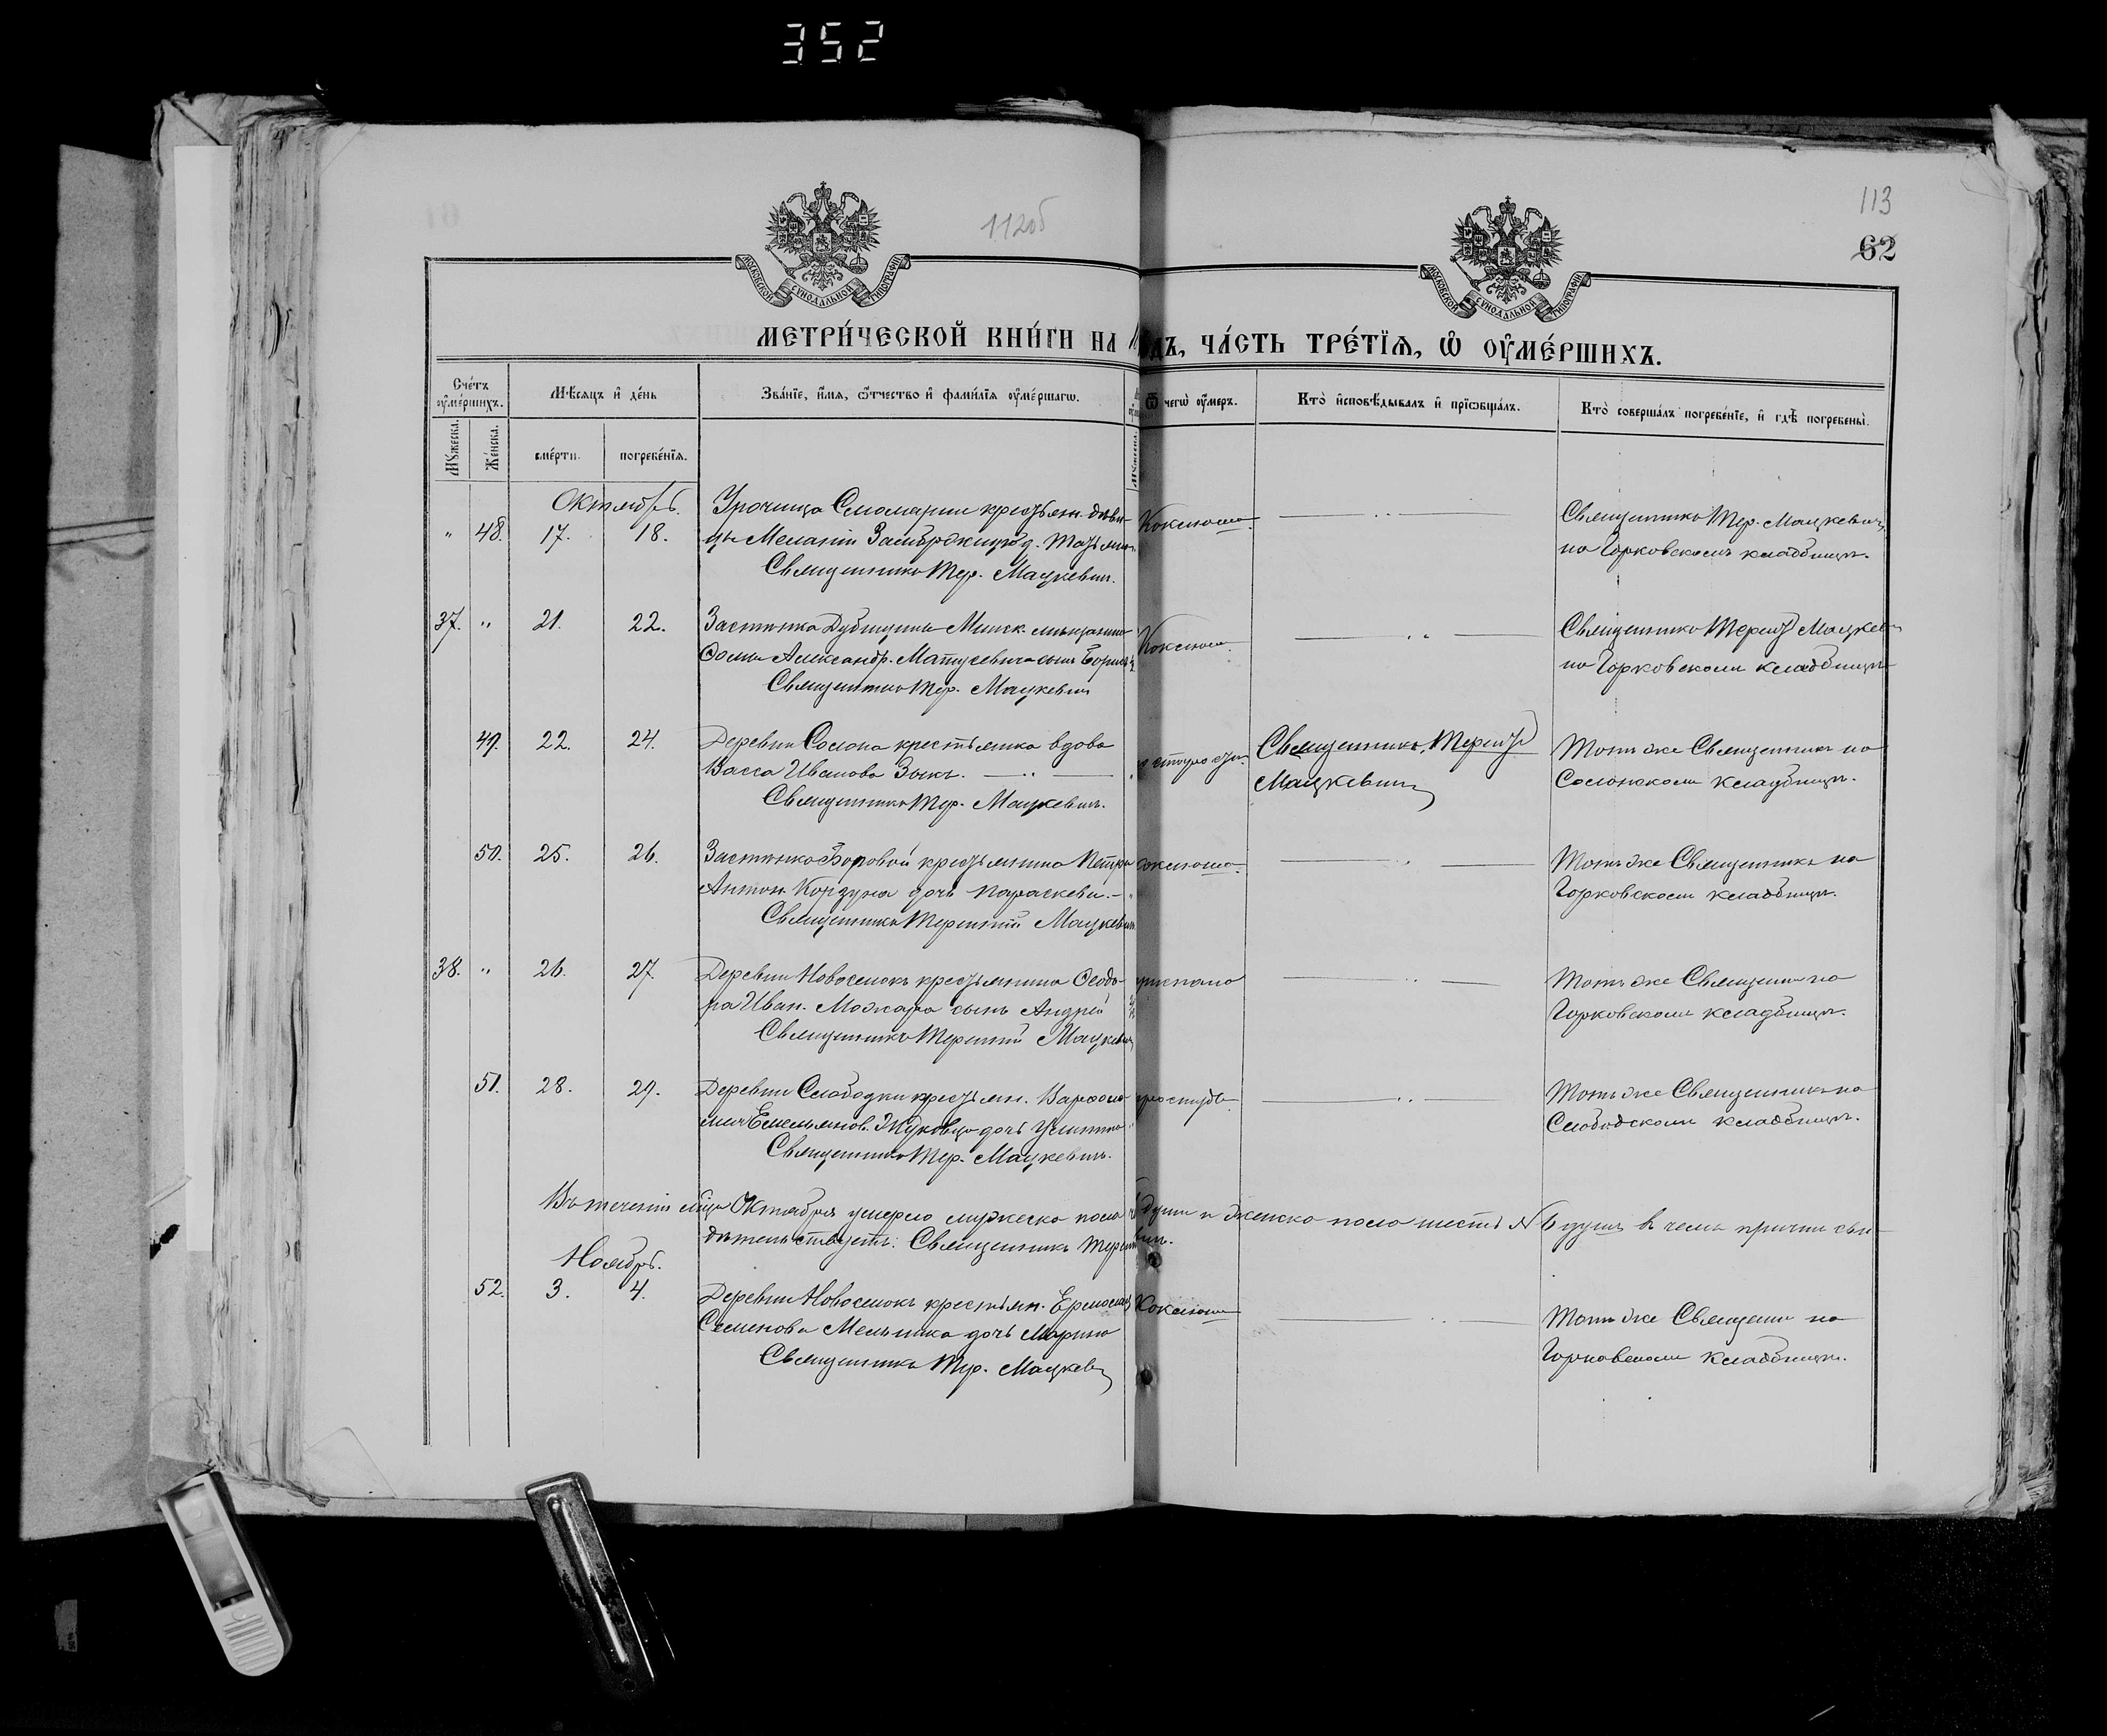 352
112об
113
62
МОСКОВСКОЙ СѴНОДАЛЬНОЙ ТИПОГРАФІИ
МОСКОВСКОЙ СѴНОДАЛЬНОЙ ТИПОГРАФІИ
МЕТРИ́ЧЕСКОЙ КНИ́ГИ НА
ДЪ, ЧА́СТЬ ТРЕ́ТЇѦ, Ѡ҆ ОУ҆МЕ́РШИХЪ.
Сче́тъ оу҆ме́ршихъ.
Мѣ́сѧцъ и҆ де́нь
Зва́нїе, и҆́мѧ, ѻ҆́тчество и҆ фами́лїѧ оу҆ме́ршагѡ.
Ѿ чегѡ̀ оу҆́меръ.
Кто̀ и҆сповѣ́дывалъ и҆ прїѡбща́лъ.
Кто̀ соверша́лъ погребе́нїе, и҆ гдѣ̀ погребены̀.
Мꙋ́жеска.
Же́нска.
сме́рти.
погребе́нїѧ.
Октябрь.
" 48. 17. 18. Урочища крестьян. дѣви-
цы Меланіи
Священникъ Тер. Мацкевич.
Коклюша
Священникъ Тер. Мацкевичъ
на Горковскомъ кладбищѣ.
37. " 21. 22. Застѣнка Минск. мѣщанина
Ѳомы Александр. Матусевича сынъ Борисъ
Священникъ Тер. Мацкевич
Коклюш.
Священникъ Терентій Мацкев
на Горковском кладбищѣ
49. 22. 24. Деревни Солона крестьянка вдова
Васса Иванова Зыкъ.
Священникъ Тер. Мацкевичъ.
Священникъ Терентій
Мацкевичъ
Тотъ же Священникъ на
Солонском кладбищѣ.
50. 25. 26. Застѣнка Боровой крестьянина Петра
Антон. Корзуна дочь Параскева.
Священникъ Терентій Мацкевич
коклюша.
Тотъ же Священникъ на
Горковском кладбищѣ.
38. " 26. 27. Деревни Новоселокъ крестьянина Ѳеодо-
ра Иван. Можара сынъ Андрей
Священникъ Терентій Мацкевич
Тотъ же Священ на
Горковском кладбищѣ.
51. 28. 29. Деревни Слободки крестьян. Варѳоло-
мея Емельянов. Жуковца дочь Устинья
Священникъ Тер. Мацкевичъ.
простуды
Тотъ же Священникъ на
Слободском кладбищѣ.
Въ теченіи Октября умерло мужеска пола души и женска пола шесть № 6 душъ в чемъ причтъ сви-
дѣтельствуетъ. Священникъ
Ноябрь.
52. 3. 4. Деревни Новоселокъ крестьян. Ермолая
Семенова Мельника дочь Марина
Священникъ Тер. Мацкевич
Коклюша
Тотъ же Священ на
Горковском кладбищѣ.